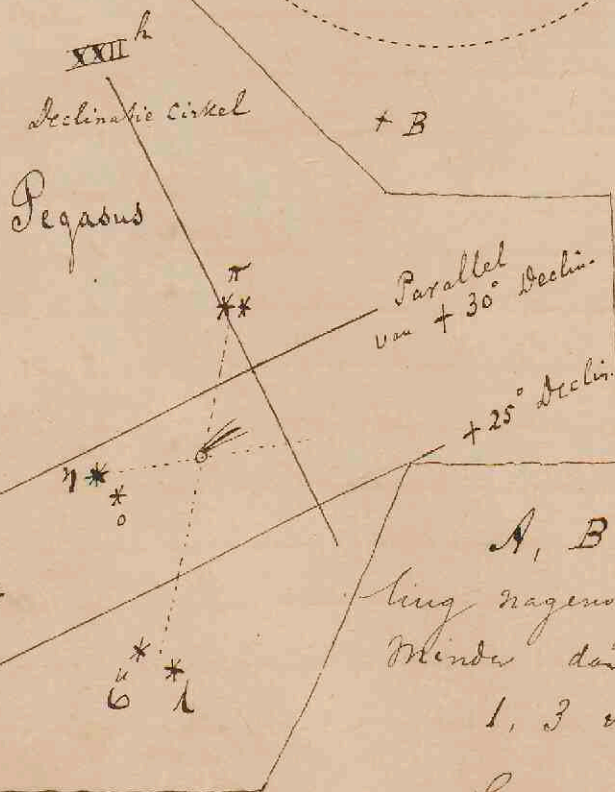 XXII h
Declinatie Cirkel
+ B
Pegasus
π
Parallel
van + 30° Declin.
+ 25° Declin.
η
o
A, B
ling nageno
Minder
1, 3